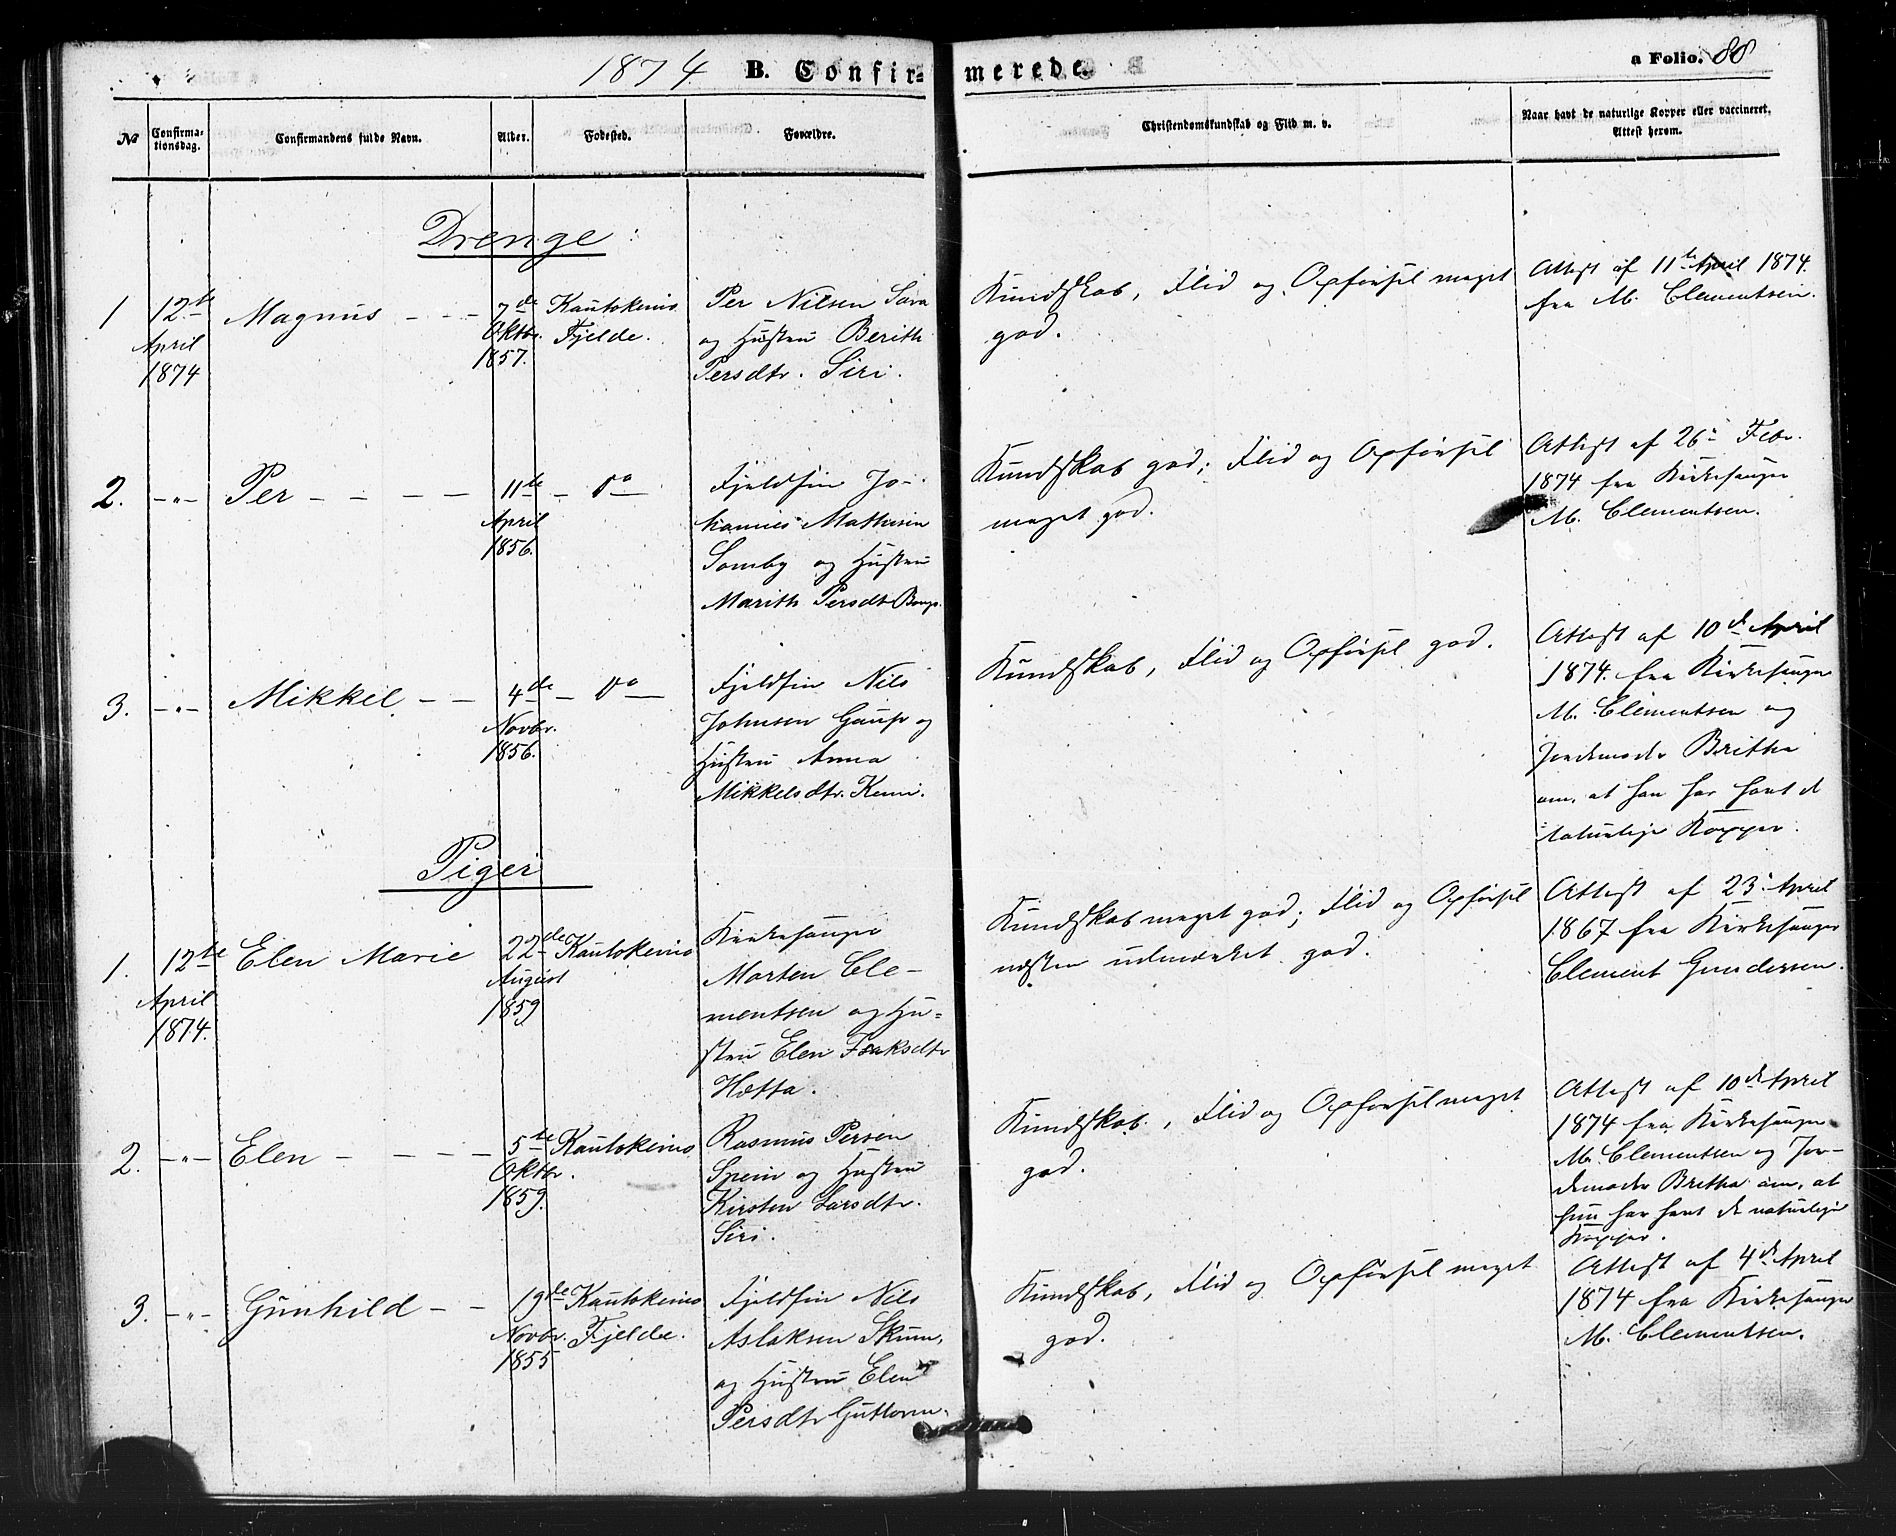 1874. B. Confirmerede. a Folio. 88
No Confirmationsdag. Confirmandens fulde Navn. Alder. Fødested. Forældre. Christendomskundskab og Flid m. v. Naar havt de naturlige Kopper eller vaccineret, Attest herom.
Drenge:
1 12te April 1874 Magnus - - - 7de Oktbr. 1857. Kautokeino Fjelde.
Per Nilsen Sara
og Hustru Berith
Persdtr. Siri.
Kundskab, Flid og Opførsel meget
god.
Attest af 11te April 1874.
fra M. Clementsen.
2. -"- Per - - - - 11te April 1856. - Do -
Fjeldfin Jo-
hannes Mathisen
Somby og Hustru
Marith Persdtr
Kundskab god; Flid og Opførsel
meget god.
Attest af 26de Febr.
1874 fra Kirkesanger
M. Clementsen.
3. -"- Mikkel - - 4de Novbr. 1856. - Do -
Fjeldfin Nils
Johnsen Gaup og
Hustru Anna
Mikkelsdtr. Kemi.
Kundskab, Flid og Opførsel god.
Attest af 10de April
1874. fra Kirkesanger
M. Clementsen og
Jordemoder Britha
om, at han har havt de
naturlige Kopper.
Piger
1. 12te April 1874. Elen Marie 22de August 1859 Kautokeino
Kirkesanger
Morten Cle-
mentsen og Hu-
stru Elen Isaksdtr
Hætta.
Kundskab meget god; Flid og Opførsel
næsten udmærket god.
Attest af 23de April
1867 fra Kirkesanger
Clement Gundersen.
2. -"- Elen - - - - 5te Oktbr. 1859. Kautokeino
Rasmus Persen
Spein og Hustru
Kirsten Larsdtr.
Siri.
Kundskab, Flid og Opførsel meget
god.
Attest af 10de April
1874 fra Kirkesanger
M. Clementsen og Jor-
demoder Britha om, at
hun har havt de naturlige
Kopper.
3. -"- Gunhild - - 19de Novbr. 1855 Kautokeino Fjelde.
Fjeldfin Nils
Aslaksen Skum,
og Hustru Elen
Persdtr Guttorm.
Kundskab, Flid og Opførsel meget
god.
Attest af 4de April
1874 fra Kirkesanger
M. Clementsen.